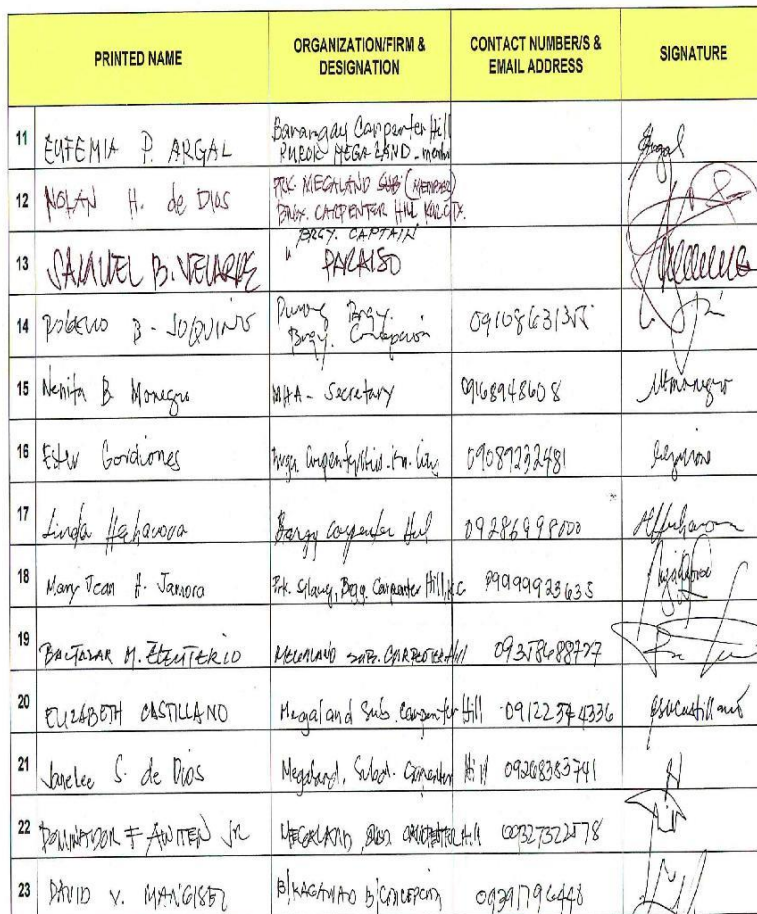 PRINTED NAME
ORGANIZATION/FIRM &
DESIGNATION
CONTACT NUMBER/S &
EMAIL ADDRESS
SIGNATURE
11
EUFEMIA P. ARGAL
Barangay Carpenter Hill
PUROK MEGA LAND - member
12
NOLAN H. de DIOS
PRK. MEGALAND SUB (MEMBER)
BRGY. CARPENTER HILL
13
SAMUEL B. VELARDE
BRGY. CAPTAIN
" PARAISO
14
B. JOQUINO
Punong Brgy.
Brgy. Concepcion
15
Nenita B. Monegro
MHA - Secretary
09168948608
16
Ester Gordiones
09089232481
17
Linda
Brgy Carpenter Hill
09286998000
18
Mary Jean A. Jamora
Prk. Silang, Brgy. Carpenter Hill, K.C
09999923635
19
BALTAZAR M. ELEUTERIO
MEGALAND SUB. CARPENTER Hill
09358688727
20
ELIZABETH CASTILLANO
Megaland Sub. Carpenter Hill
09122344336
21
Janelee S. de Dios
Megaland, Subd. Carpenter Hill
09268383741
22
DOMINADOR F JR
MEGALAND CARPENTER Hill
23
DAVID V.
B/KAGAWAD B/CONCEPCION
09391796448